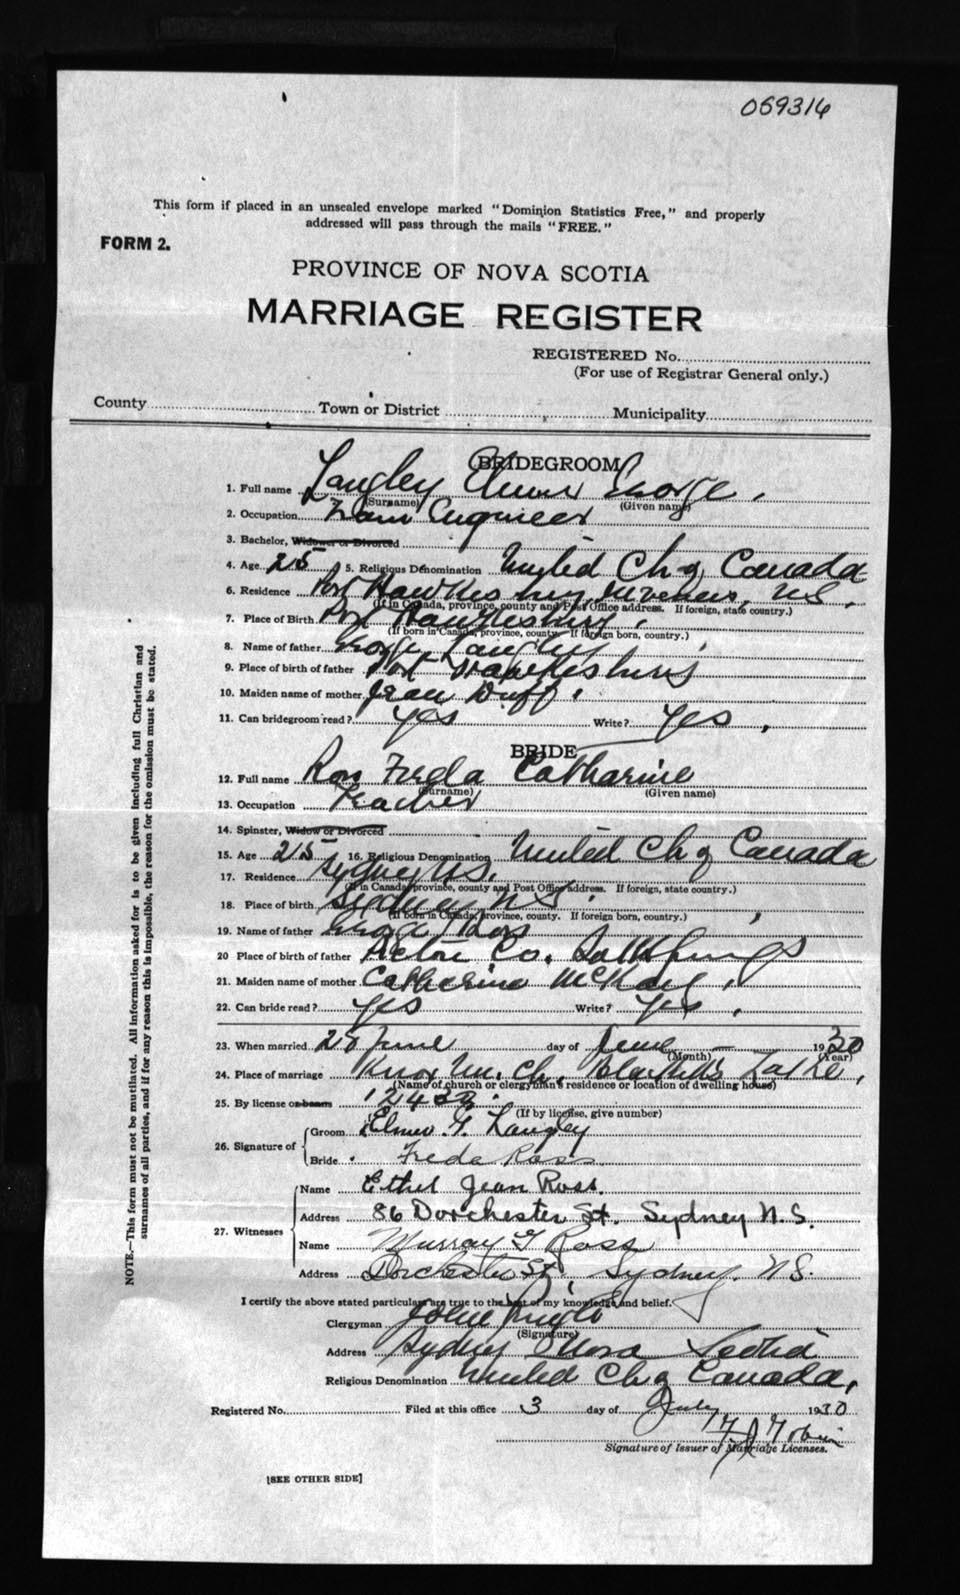 069316
This form if placed in an unsealed envelope marked "Dominion Statistics Free," and properly
addressed will pass through the mails "FREE."
FORM 2.
PROVINCE OF NOVA SCOTIA
MARRIAGE REGISTER
REGISTERED No.
(For use of Registrar General only.)
County Town or District Municipality
BRIDEGROOM
1. Full name Langley Elmer George
(Surname) (Given name)
2. Occupation Engineer
3. Bachelor, Widower or Divorced
4. Age 25 5. Religious Denomination United Ch of Canada
6. Residence Port Hawkesbury, Inverness, N.S.
(If in Canada, province, county and Post Office address. If foreign, state country.)
7. Place of Birth Port Hawkesbury
(If born in Canada, province, county. If foreign born, country.)
8. Name of father George Langley
9. Place of birth of father Port Hawkesbury
10. Maiden name of mother Jean Duff
11. Can bridegroom read? Yes Write? Yes
BRIDE
12. Full name Ross Freda Catharine
(Surname) (Given name)
13. Occupation Teacher
14. Spinster, Widow or Divorced
15. Age 25 16. Religious Denomination United Ch of Canada
17. Residence Sydney N.S.
(If in Canada, province, county and Post Office address. If foreign, state country.)
18. Place of birth Sydney N.S.
(If born in Canada, province, county. If foreign born, country.)
19. Name of father Ross
20 Place of birth of father Pictou Co. Salt Springs
21. Maiden name of mother Catherine McKay
22. Can bride read? Yes Write? Yes
23. When married 28 June day of June 1930
(Month) (Year)
24. Place of marriage Knox Un. Ch. Blacketts Lake,
(Name of church or clergyman's residence or location of dwelling house)
25. By license or banns 12432
(If by license, give number)
26. Signature of Groom Elmer G. Langley
Bride Freda Ross
27. Witnesses Name Ethel Jean Ross.
Address 86 Dorchester St. Sydney N.S.
Name Murray G Ross
Address Dorchester St, Sydney. N.S.
I certify the above stated particulars are true to the best of my knowledge and belief.
Clergyman John Pringle
(Signature)
Address Sydney Nova Scotia
Religious Denomination United Ch of Canada,
Registered No. Filed at this office 3 day of July 1930
Signature of Issuer of Marriage Licenses.
[SEE OTHER SIDE]
NOTE.—This form must not be mutilated. All information asked for is to be given including full Christian and
surnames of all parties, and if for any reason this is impossible, the reason for the omission must be stated.